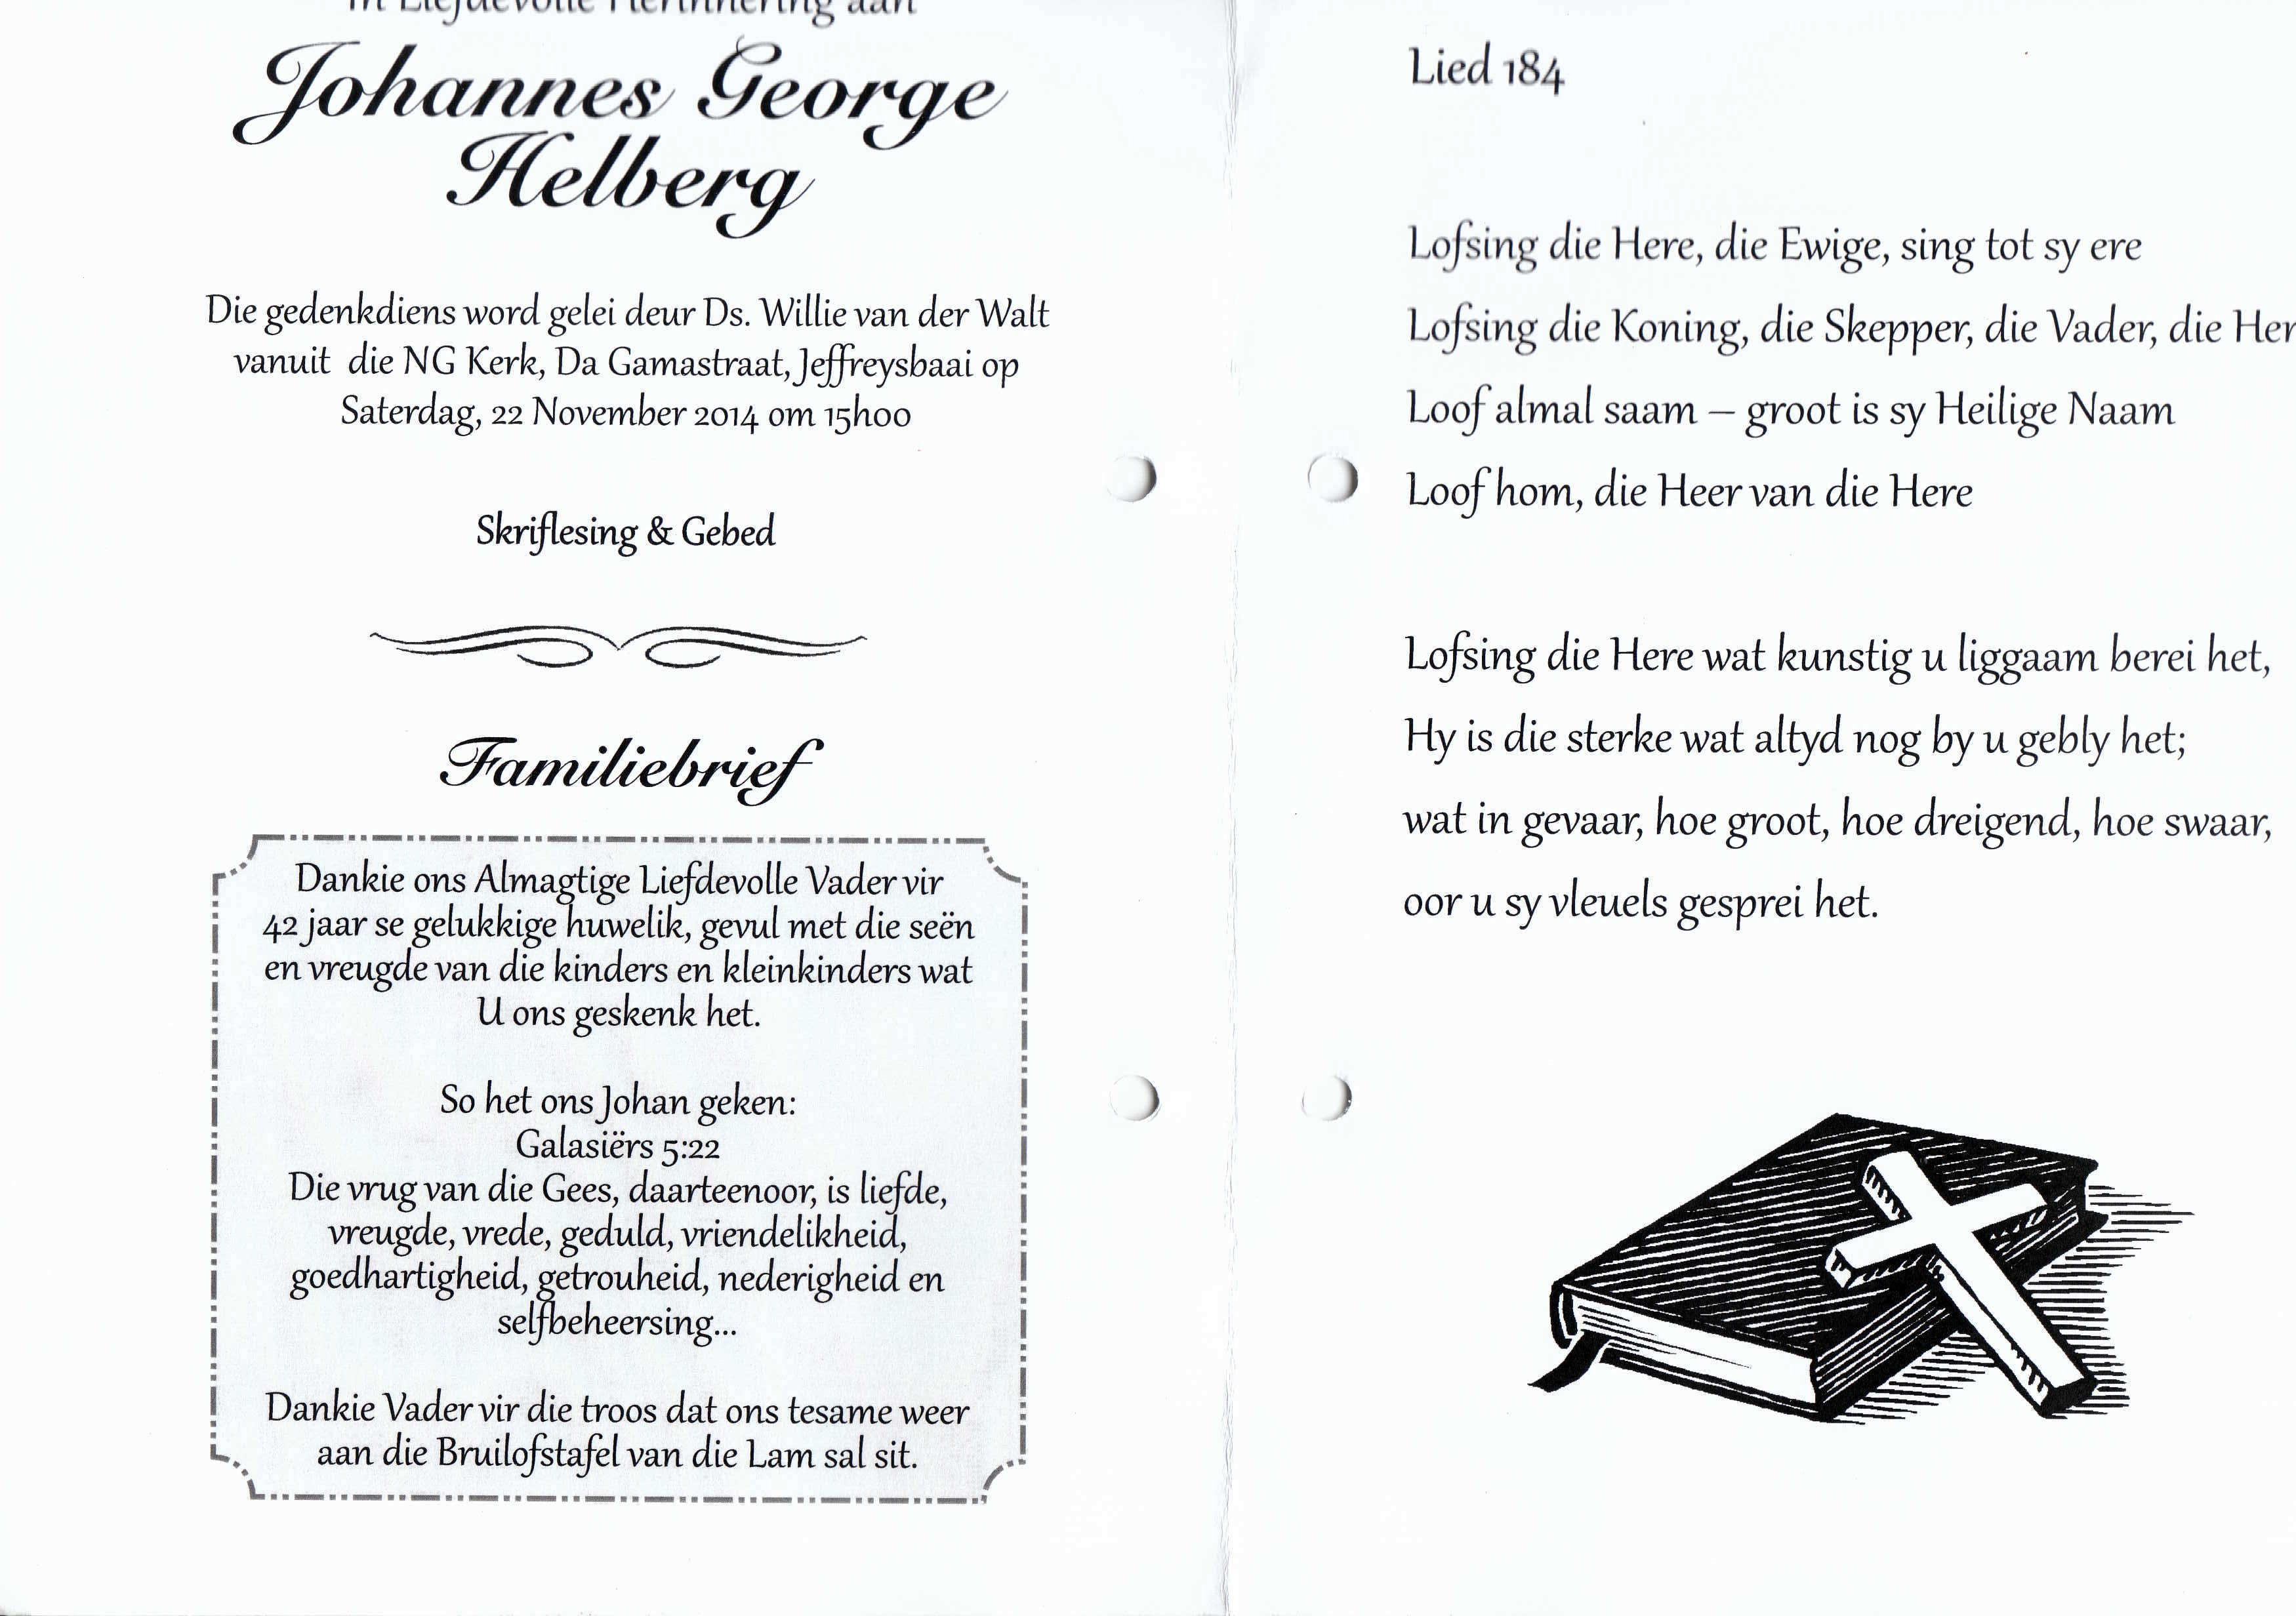 In Liefdevolle Herinnering aan
Johannes George
Helberg
Die gedenkdiens word gelei deur Ds. Willie van der Walt
vanuit die NG Kerk, Da Gamastraat, Jeffreysbaai op
Saterdag, 22 November 2014 om 15h00
Skriflesing & Gebed
Familiebrief
Dankie ons Almagtige Liefdevolle Vader vir
42 jaar se gelukkige huwelik, gevul met die seën
en vreugde van die kinders en kleinkinders wat
U ons geskenk het.
So het ons Johan geken:
Galasiërs 5:22
Die vrug van die Gees, daarteenoor, is liefde,
vreugde, vrede, geduld, vriendelikheid,
goedhartigheid, getrouheid, nederigheid en
selfbeheersing...
Dankie Vader vir die troos dat ons tesame weer
aan die Bruilofstafel van die Lam sal sit.
Lied 184
Lofsing die Here, die Ewige, sing tot sy ere
Lofsing die Koning, die Skepper, die Vader, die Her
Loof almal saam – groot is sy Heilige Naam
Loof hom, die Heer van die Here
Lofsing die Here wat kunstig u liggaam berei het,
Hy is die sterke wat altyd nog by u gebly het;
wat in gevaar, hoe groot, hoe dreigend, hoe swaar,
oor u sy vleuels gesprei het.